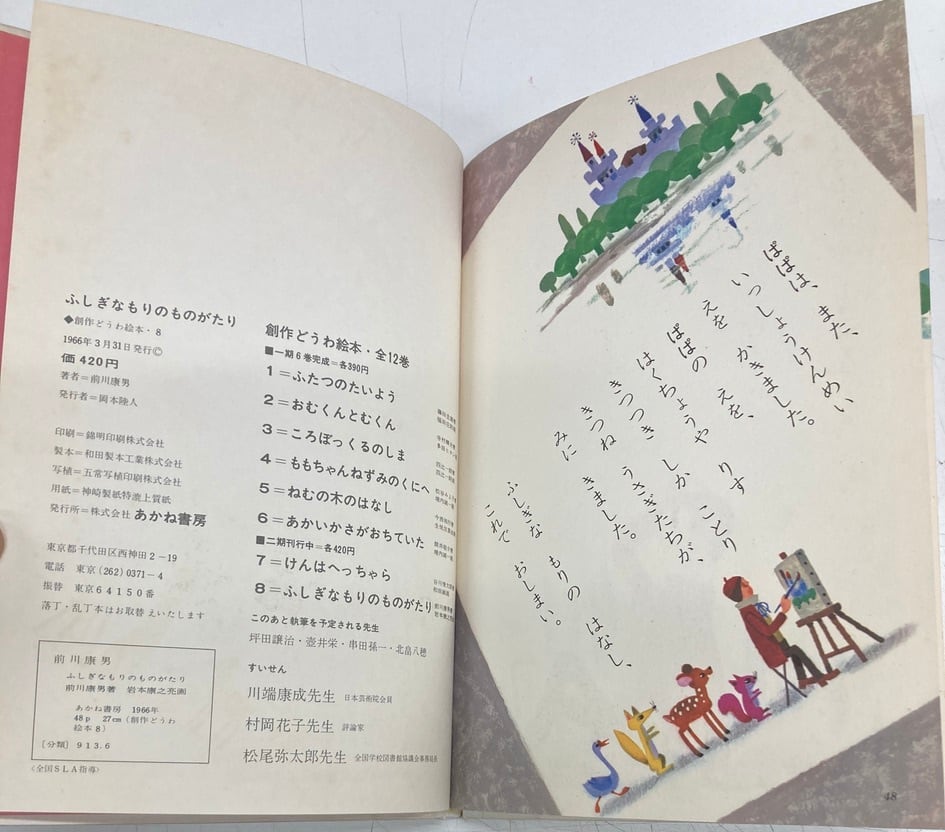 ぱぱは、また、
いっしょうけんめい
えを かきました。
ぱぱの えを、 りす ことり
はくちょうや しか
きつつき うさぎたちが、
きつね
みに きました。
ふしぎな もりの はなし、
これで おしまい。
48
ふしぎなもりのものがたり
◆創作どうわ絵本・8
1966年3月31日発行©
価420円
著者=前川康男
発行者=岡本陸人
印刷=錦明印刷株式会社
製本=和田製本工業株式会社
写植=五常写植印刷株式会社
用紙=神崎製紙特漉上質紙
発行所=株式会社 あかね書房
東京都千代田区西神田2-19
電話 東京(262)0371-4
振替 東京64150番
落丁・乱丁本はお取替えいたします
前川康男
ふしぎなもりのものがたり
前川康男著 岩本康之亮画
あかね書房 1966年
48p 27cm(創作どうわ
絵本8)
[分類] 913.6
〈全国SLA指導〉
創作どうわ絵本・全12巻
■一期6巻完成=各390円
1=ふたつのたいよう
2=おむくんとむくん
3=ころぼっくるのしま
4=ももちゃんねずみのくにへ
5=ねむの木のはなし
6=あかいかさがおちていた
■二期刊行中=各420円
7=けんはへっちゃら
8=ふしぎなもりのものがたり
このあと執筆を予定される先生
坪田譲治・壺井栄・串田孫一・北畠八穂
すいせん
川端康成先生 日本芸術院会員
村岡花子先生 評論家
松尾弥太郎先生 全国学校図書館協議会事務局長